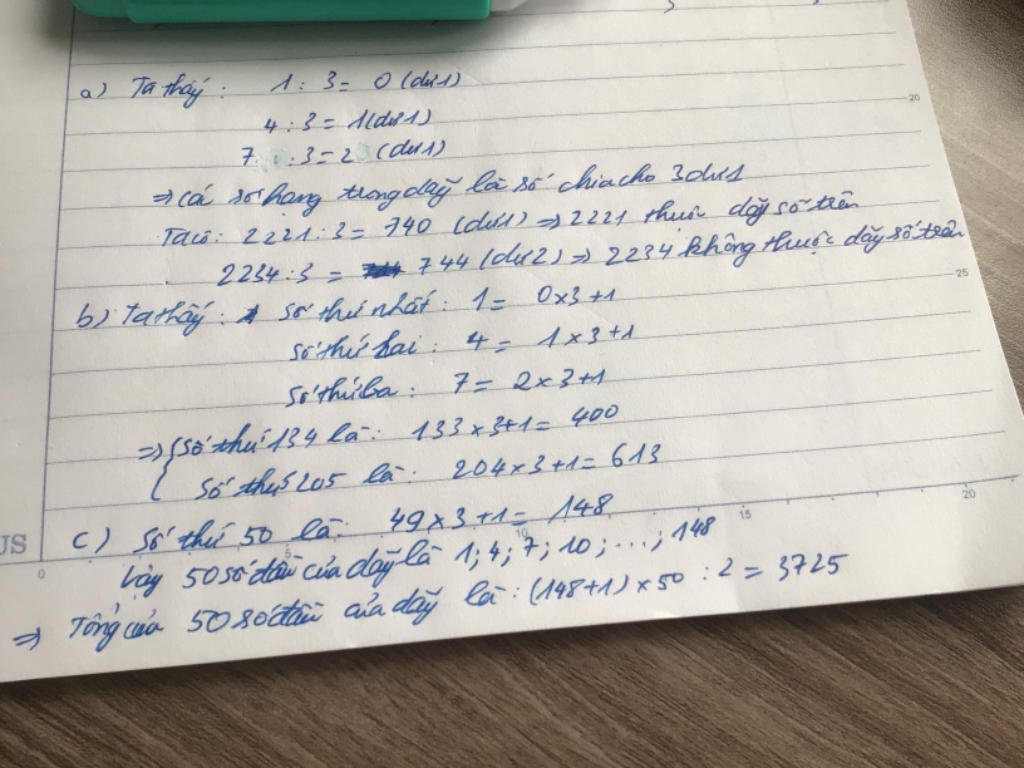 20
a) Ta thấy : 1 : 3 = 0 (dư 1)
4 : 3 = 1 (dư 1)
7 : 3 = 2 (dư 1)
=> Cá số hạng trong dãy là số chia cho 3 dư 1
Ta có : 2221 : 3 = 740 (dư 1) => 2221 thuộc dãy số trên
2234 : 3 = 744 (dư 2) => 2234 không thuộc dãy số trên
25
b) Ta thấy : số thứ nhất : 1 = 0 x 3 + 1
số thứ hai : 4 = 1 x 3 + 1
số thứ ba : 7 = 2 x 3 + 1
=> { số thứ 134 là : 133 x 3 + 1 = 400
số thứ 205 là : 204 x 3 + 1 = 613
c) Số thứ 50 là : 49 x 3 + 1 = 148
US 0 5 10 15 20
Vậy 50 số đầu của dãy là 1 ; 4 ; 7 ; 10 ; ... ; 148
=> Tổng của 50 số đầu của dãy là : (148 + 1) x 50 : 2 = 3725